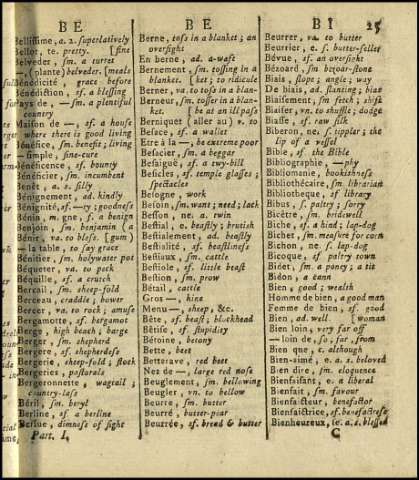 BE
BE
BI
25
Bellissime, a. 2. superlatively
Bellot, te. pretty. [fine
Belveder, sm. a turret
—, (plante) belveder, [meals
Bénédicité, grace before
Bénédiction, sf. a blessing
Pays de, — sm. a plentiful
country
Maison de —, sf. a house
where there is good living
Bénéfice, sm. benefit; living
— simple, sine-cure
Bénéficence, sf. bounty
Bénéficier, sm. incumbent
Benêt, a. s. silly
Bénignement, ad. kindly
Bénignité, sf. —ty; goodness
Bénin, m. gne, f. a benign
Benjoin, sm. benjamin (a
Bénir, va. to bless. [gum)
— la table, to say grace
Bénitier, sm. holywater pot
Béqueter, va. to peck
Béquille, sf. a crutch
Bercail, sm. sheep-fold
Berceau, craddle; bower
Bercer, va. to rock; amuse
Bergamotte, sf. bergamot
Berge, high beach; barge
Berger, sm. shepherd
Bergere, sf. shepherdess
Bergerie, sheep-fold; flock
Bergeries, pastorals
Bergeronnette, wagtail;
country-lass
Béril, sm. beryl
Berline, sf. a berline
Berlue, dimness of sight
Part. I.
Berne, toss in a blanket; an
oversight
En berne, ad. a-waft
Bernement, sm. tossing in a
blanket. [ket; to ridicule
Berner, va. to toss in a blan-
Berneur, sm. tosser in a blan-
ket. [be at an ill pass
Berniquet (aller au) v. to
Besace, sf. a wallet
Etre à la —, be extreme poor
Besacier, sm. a beggar
Besaiguë, sf. a twy-bill
Besicles, sf. temple glasses;
spectacles
Besogne, work
Besoin, sm. want; need; lack
Besson, ne. a. twin
Bestial, e. beastly; brutish
Bestialement, ad. beastly
Bestialité, sf. beastliness
Bestiaux, sm. cattle
Bestiole, sf. little beast
Bestion, sm. prow
Bétail, cattle
Gros —, kine
Menu —, sheep, &c.
Bête, sf. beast; blockhead
Bêtise, sf. stupidity
Bétoine, betony
Bette, beet
Betterave, red beet
Nez de —, large red nose
Beuglement, sm. bellowing
Beugler, vn. to bellow
Beurre, sm. butter
Beurré, butter-pear
Beurrée, sf. bread & butter
Beurrer, va. to butter
Beurrier, e. s. butter-seller
Bévue, sf. an oversight
Bézoard, sm bezoar-stone
Biais, slope; angle; way
De biais, ad. slanting; bias
Biaisement, sm fetch; shift
Biaiser, vn. to shuffle; dodge
Biasse, sf. raw silk
Biberon, ne. s. tippler; the
lip of a vessel
Bible, sf. the Bible
Bibliographie, —phy
Bibliomanie, bookishness
Bibliothécaire, sm. librarian
Bibliotheque, sf. library
Bibus, s. paltry; sorry
Bicêtre, sm. bridewell
Biche, sf. a hind; lap-dog
Bichet, sm. measure for corn
Bichon, ne. s. lap-dog
Bicoque, sf. paltry town
Bidet, sm. a poney; a tit
Bidon, a cann
Bien, good; wealth
Homme de bien, a good man
Femme de bien, sf. good
Bien, ad. well. [woman
Bien loin, very far off
— loin de, so far from
Bien que, c. although
Bien-aimé, e. a. s. beloved
Bien dire, sm. eloquence
Bienfaisant, e. a liberal
Bienfait, sm. favour
Bienfaicteur, benefactor
Bienfaictrice, sf. benefactress
Bienheureux, se. a. s. blessed
C